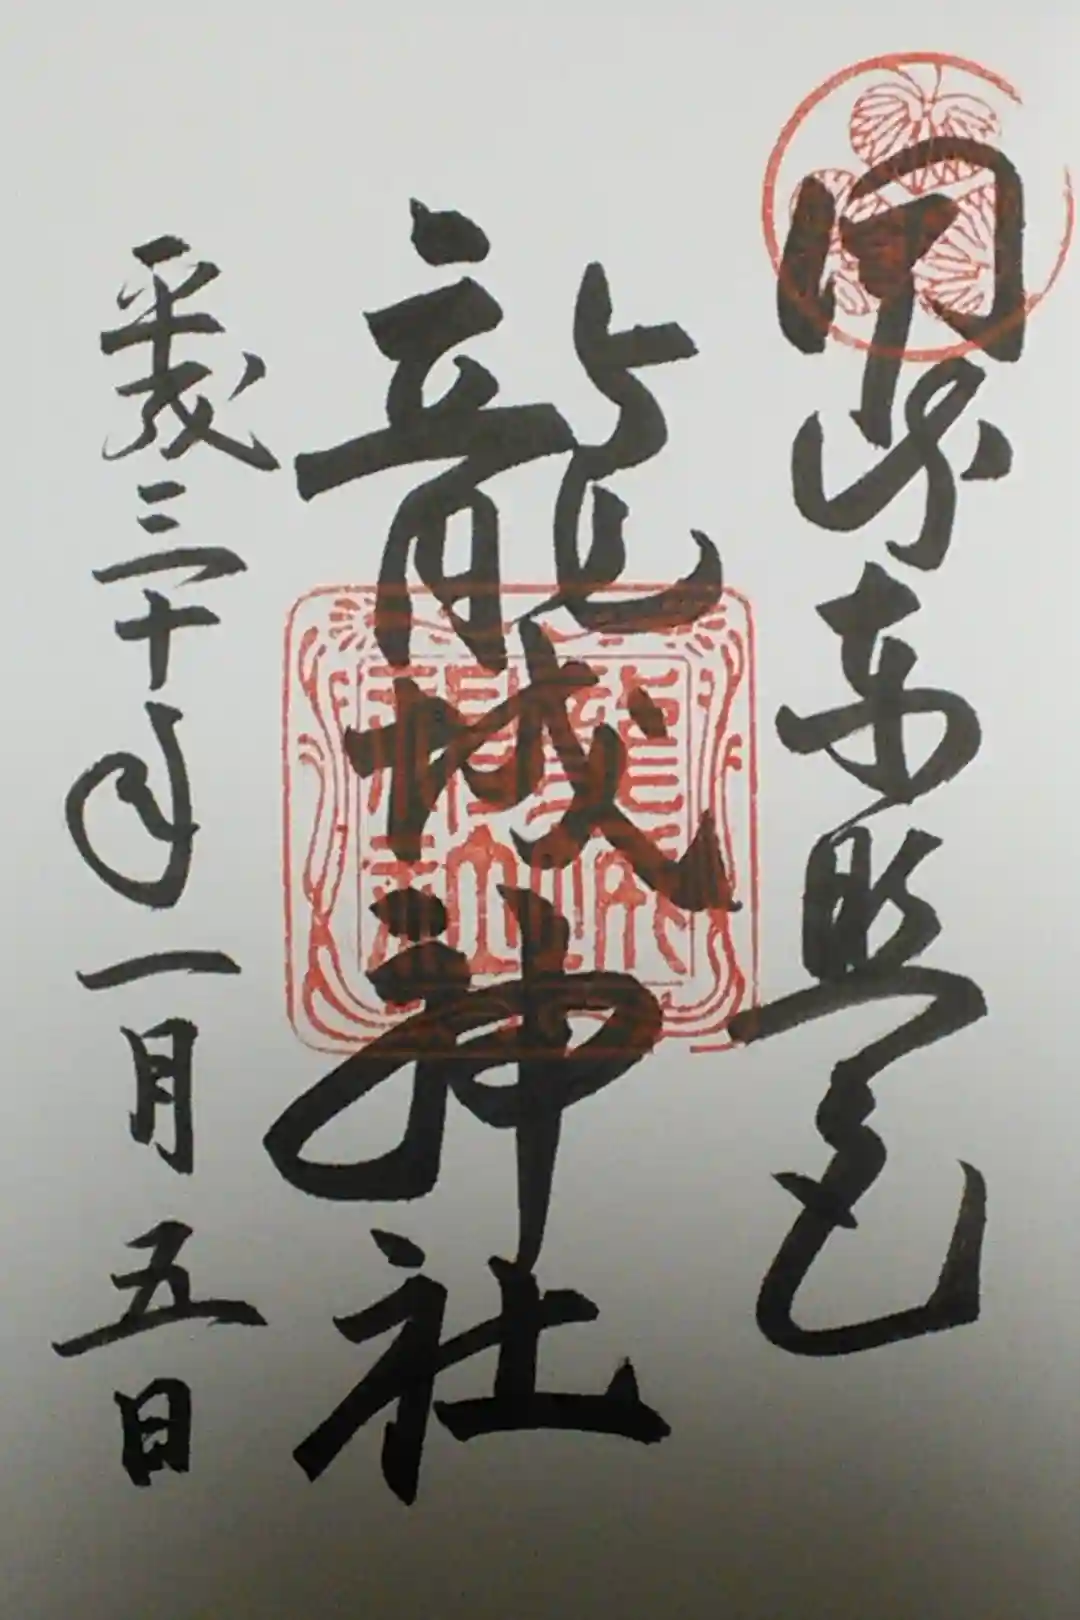 岡崎東照宮
龍城神社
平成三十年一月五日
龍城神社